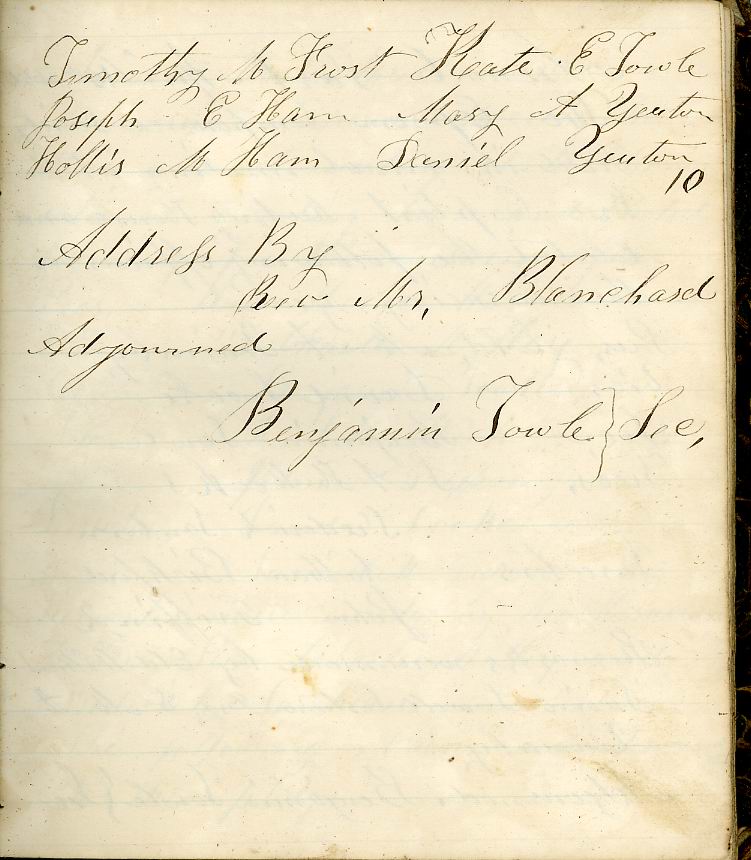 Timothy M Frost Kate E Towle
Joseph E Ham Mary A Yeaton
Hollis M Ham Daniel Yeaton
10
Address By
Rev Mr, Blanchard
Adjourned
Benjamin Towle } Sec,